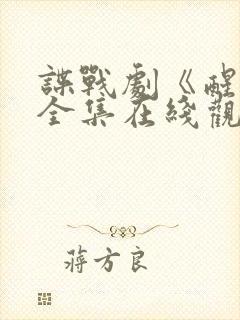 諜戰劇《醒
全集在綫觀
蔣方良